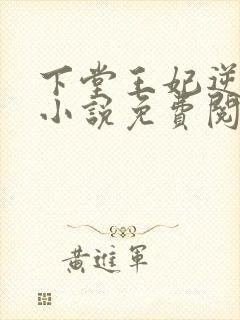 下堂王妃逆
小說免費閱
黃進軍